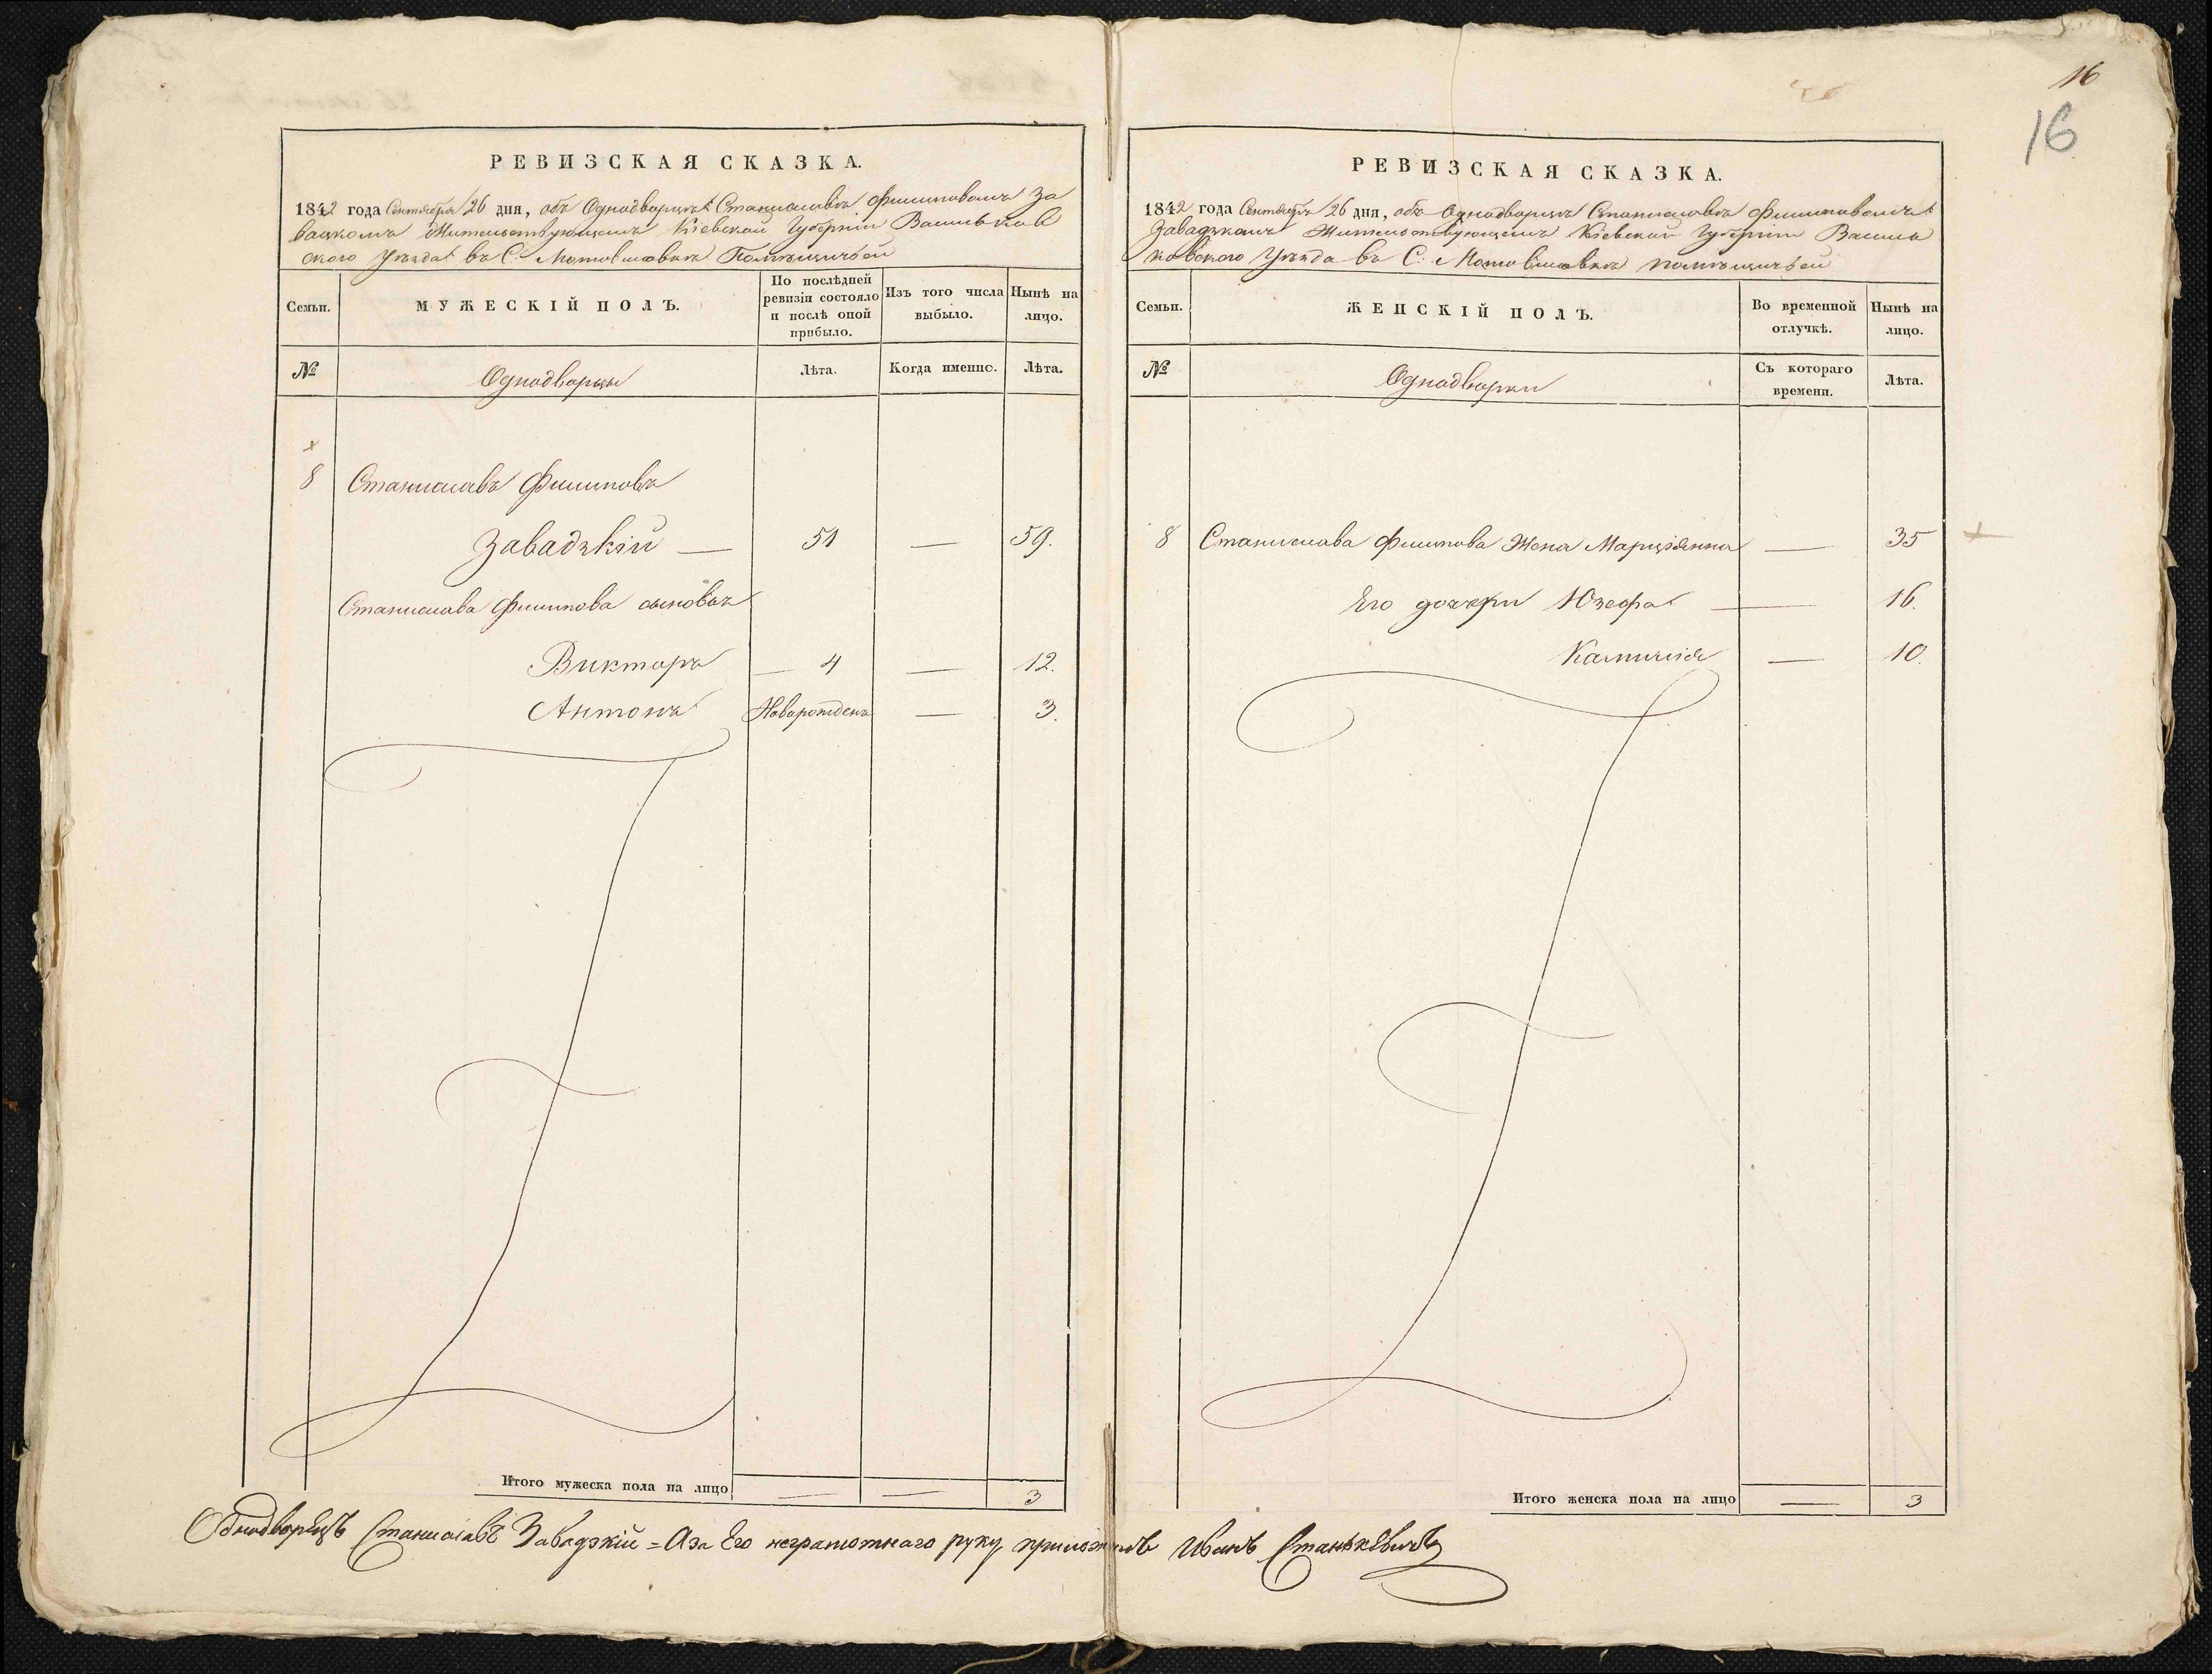 16
16
РЕВИЗСКАЯ СКАЗКА.
1842 года Сентября 26 дня, объ Однодворцѣ Станиславѣ Филиповомъ За
вацкомъ Жительствующемъ Кіевской Губерніи Васильков
ского Уѣзда въ С. Мотовиловкѣ Помѣщичьей
Семьи.
МУЖЕСКІЙ ПОЛЪ.
По послѣдней ревизіи состояло и послѣ оной прибыло.
Изъ того числа выбыло.
Нынѣ на лицо.
№
Однодворцы
Лѣта.
Когда именно.
Лѣта.
8 Станиславъ Филиповъ
Завадзкій — 51 — 59.
Станислава Филипова сыновья
Викторъ — 4 — 12.
Антонъ Новорожденъ — 3.
Итого мужеска пола на лицо — — 3
РЕВИЗСКАЯ СКАЗКА.
1842 года Сентября 26 дня, объ Однодворцѣ Станиславѣ Филиповомъ
Завадзкомъ Жительствующемъ Кіевской Губерніи Василь
ковского Уѣзда въ С. Мотовиловкѣ помѣщичьей
Семьи.
ЖЕНСКІЙ ПОЛЪ.
Во временной отлучкѣ.
Нынѣ на лицо.
№
Однодворки
Съ котораго времени.
Лѣта.
8 Станислава Филипова Жена Марціянна — 35
Его дочери Юзефа — 16.
Камилія — 10.
Итого женска пола на лицо — 3
Однодворецъ Станиславъ Завадзкій = А за Его неграмотнаго руку приложилъ Иванъ Станькевичъ